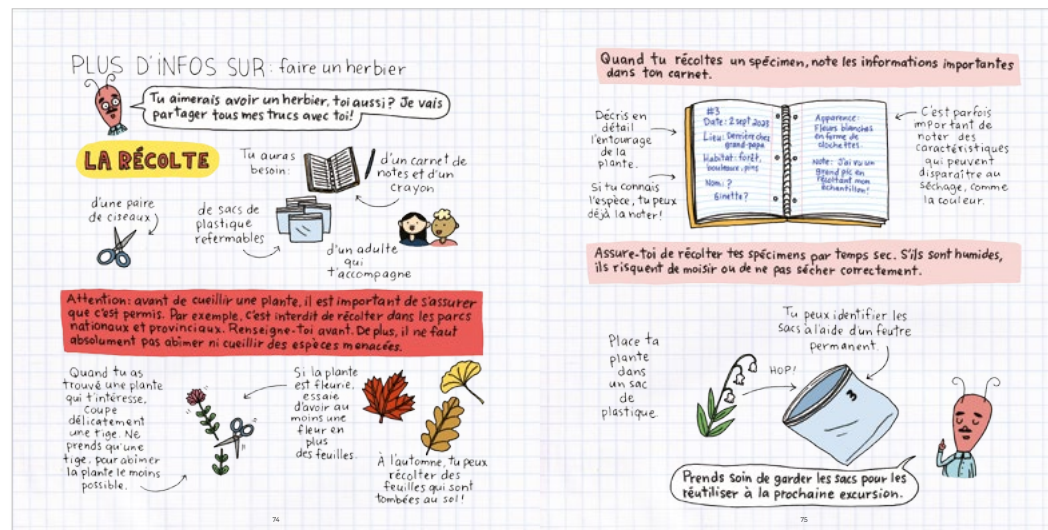 PLUS D'INFOS SUR: faire un herbier
Tu aimerais avoir un herbier, toi aussi? Je vais
partager tous mes trucs avec toi!
LA RÉCOLTE
Tu auras
besoin:
d'un carnet de
notes et d'un
crayon
d'une paire
de ciseaux
de sacs de
plastique
refermables
d'un adulte
qui
t'accompagne
Attention: avant de cueillir une plante, il est important de s'assurer
que c'est permis. Par exemple, c'est interdit de récolter dans les parcs
nationaux et provinciaux. Renseigne-toi avant. De plus, il ne faut
absolument pas abîmer ni cueillir des espèces menacées.
Quand tu as
trouvé une plante
qui t'intéresse,
coupe
délicatement
une tige. Ne
prends qu'une
tige, pour abîmer
la plante le moins
possible.
Si la plante
est fleurie,
essaie
d'avoir au
moins une
fleur en
plus
des feuilles.
À l'automne, tu peux
récolter des
feuilles qui sont
tombées au sol!
74
Quand tu récoltes un spécimen, note les informations importantes
dans ton carnet.
Décris en
détail
l'entourage
de la
plante.
Si tu connais
l'espèce, tu peux
déjà la noter!
#3
Date: 2 sept 2023
Lieu: Derrière chez
grand-papa
Habitat: forêt,
bouleaux, pins
Nom: ?
Ginette?
Apparence:
Fleurs blanches
en forme de
clochettes.
Note: J'ai vu un
grand pic en
récoltant mon
échantillon!
C'est parfois
important de
noter des
caractéristiques
qui peuvent
disparaître au
séchage, comme
la couleur.
Assure-toi de récolter tes spécimens par temps sec. S'ils sont humides,
ils risquent de moisir ou de ne pas sécher correctement.
Place ta
plante
dans
un sac
de
plastique.
HOP!
Tu peux identifier les
sacs à l'aide d'un feutre
permanent.
3
Prends soin de garder les sacs pour les
réutiliser à la prochaine excursion.
75